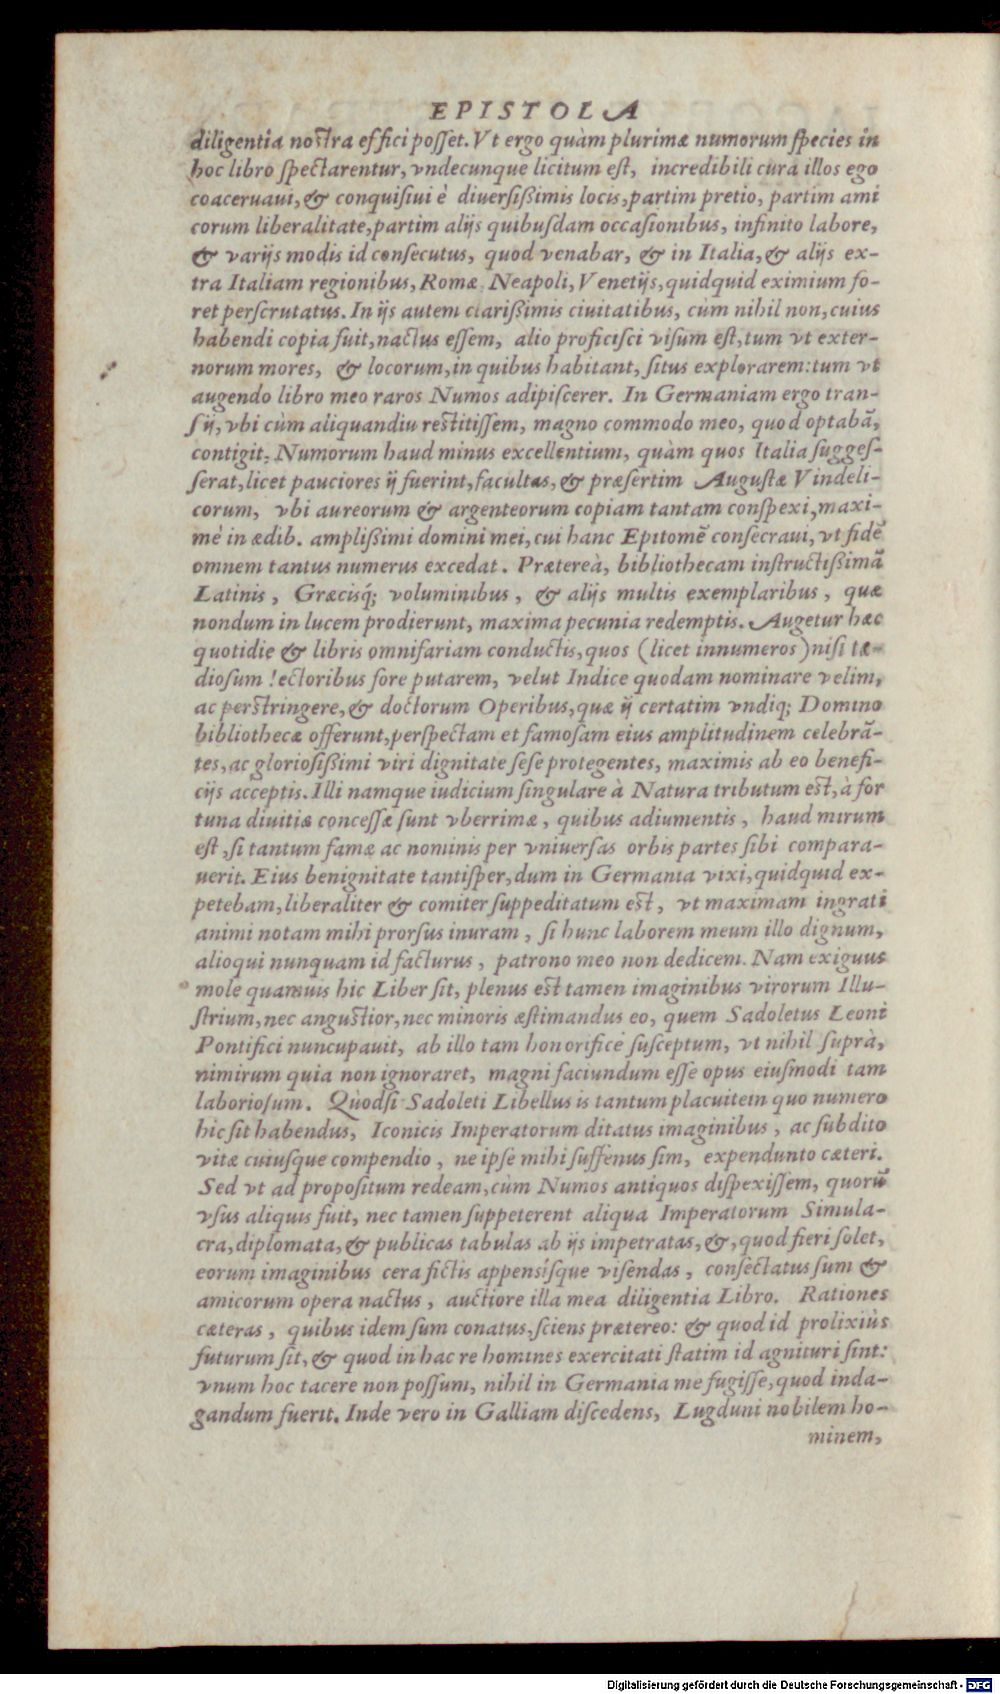 EPISTOLA
diligentia nostra effici posset. Vt ergo quàm plurimæ numorum species in
hoc libro spectarentur, vndecunque licitum est, incredibili cura illos ego
coaceruaui, & conquisiui è diuersißimis locis, partim pretio, partim ami
corum liberalitate, partim alijs quibusdam occasionibus, infinito labore,
& varijs modis id consecutus, quod venabar, & in Italia, & alijs ex-
tra Italiam regionibus, Romæ, Neapoli, Venetijs, quidquid eximium fo-
ret perscrutatus. In ijs autem clarißimis ciuitatibus, cùm nihil non, cuius
habendi copia fuit, nactus essem, alio proficisci visum est, tum vt exter-
norum mores, & locorum, in quibus habitant, situs explorarem: tum vt
augendo libro meo raros Numos adipiscerer. In Germaniam ergo tran-
sij, vbi cùm aliquandiu restitissem, magno commodo meo, quod optabã,
contigit. Numorum haud minus excellentium, quàm quos Italia sugges-
serat, licet pauciores ij fuerint, facultas, & præsertim Augustæ Vindeli-
corum, vbi aureorum & argenteorum copiam tantam conspexi, maxi-
mè in ædib. amplißimi domini mei, cui hanc Epitomẽ consecraui, vt fidẽ
omnem tantus numerus excedat. Prætereà, bibliothecam instructißimã
Latinis, Græcisq́; voluminibus, & alijs multis exemplaribus, quæ
nondum in lucem prodierunt, maxima pecunia redemptis. Augetur hæc
quotidie & libris omnifariam conductis, quos (licet innumeros) nisi tæ-
diosum lectoribus fore putarem, velut Indice quodam nominare velim,
ac perstringere, & doctorum Operibus, quæ ij certatim vndiq; Domino
bibliothecæ offerunt, perspectam et famosam eius amplitudinem celebrã-
tes, ac gloriosißimi viri dignitate sese protegentes, maximis ab eo benefi-
cijs acceptis. Illi namque iudicium singulare à Natura tributum est, à for
tuna diuitiæ concessæ sunt vberrimæ, quibus adiumentis, haud mirum
est, si tantum famæ ac nominis per vniuersas orbis partes sibi compara-
uerit. Eius benignitate tantisper, dum in Germania vixi, quidquid ex-
petebam, liberaliter & comiter suppeditatum est, vt maximam ingrati
animi notam mihi prorsus inuram, si hunc laborem meum illo dignum,
alioqui nunquam id facturus, patrono meo non dedicem. Nam exiguus
mole quamuis hic Liber sit, plenus est tamen imaginibus virorum Illu-
strium, nec angustior, nec minoris æstimandus eo, quem Sadoletus Leoni
Pontifici nuncupauit, ab illo tam honorificè susceptum, vt nihil suprà,
nimirum quia non ignoraret, magni faciundum esse opus eiusmodi tam
laboriosum. Quòdsi Sadoleti Libellus is tantum placuit, in quo numero
hic sit habendus, Iconicis Imperatorum ditatus imaginibus, ac subdito
vitæ cuiusque compendio, ne ipse mihi suffenus sim, expendunto cæteri.
Sed vt ad propositum redeam, cùm Numos antiquos dispexissem, quorũ
vsus aliquis fuit, nec tamen suppeterent aliqua Imperatorum Simula-
cra, diplomata, & publicas tabulas ab ijs impetratas, &, quod fieri solet,
eorum imaginibus cera fictis appensísque visendas, consectatus sum &
amicorum opera nactus, auctiore illa mea diligentia Libro. Rationes
cæteras, quibus idem sum conatus, sciens prætereo: & quod id prolixiùs
futurum sit, & quod in hac re homines exercitati statim id agnituri sint:
vnum hoc tacere non possum, nihil in Germania me fugisse, quod inda-
gandum fuerit. Inde vero in Galliam discedens, Lugduni nobilem ho-
minem,
Digitalisierung gefördert durch die Deutsche Forschungsgemeinschaft - DFG